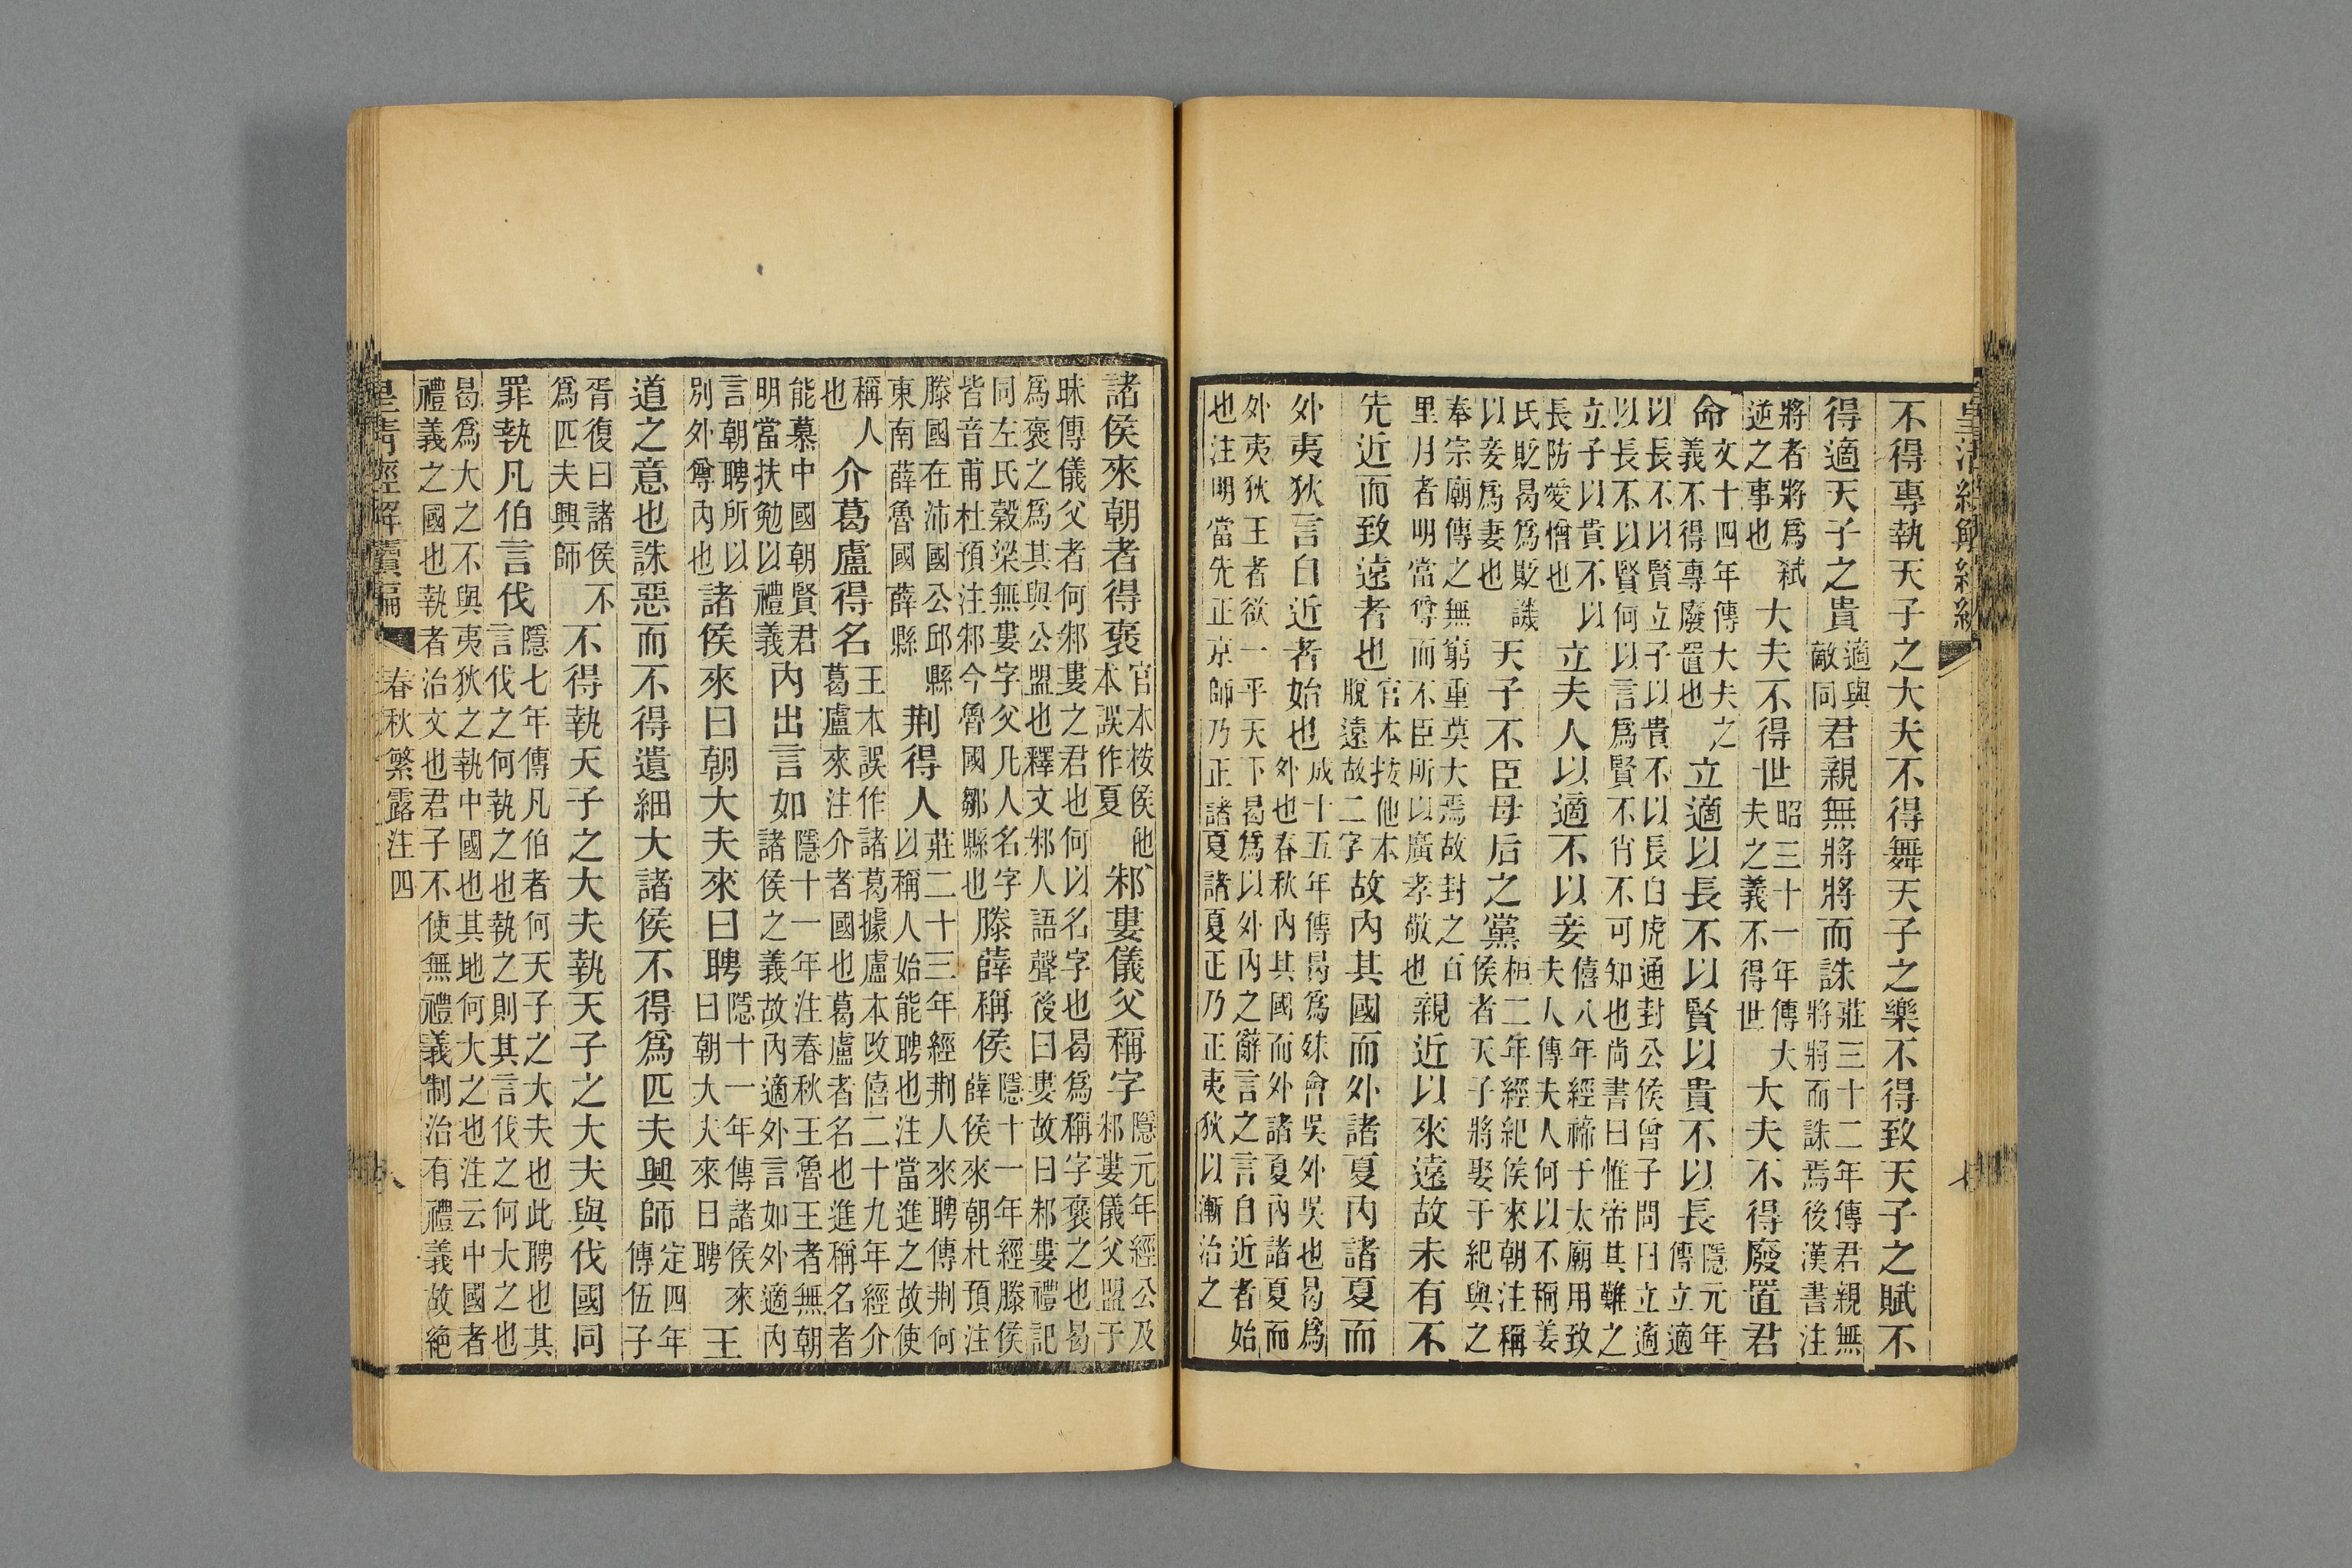 不得專執天子之大夫不得舞天子之樂不得致天子之賦不
得適天子之貴適與敵同君親無將將而誅莊三十二年傳君親無將將而誅焉後漢書注
將者將爲弒逆之事也大夫不得世昭三十一年傳大夫之義不得世大夫不得廢置君
命文十四年傳大夫之義不得專廢置也立適以長不以賢以貴不以長隱元年傳立適
以長不以賢立子以貴不以長白虎通封公侯曾子問曰立適以長不以賢何以言爲賢不肖不可知也尚書曰惟帝其難之
立子以貴不以長防愛憎也立夫人以適不以妾僖八年經禘于太廟用致夫人傳夫人何以不稱姜
氏貶曷爲貶譏以妾爲妻也天子不臣母后之黨桓二年經紀侯來朝注稱侯者天子將娶于紀與之
奉宗廟傳之無窮重莫大焉故封之百里月者明當尊而不臣所以廣孝敬也親近以來遠故未有不
先近而致遠者也官本按他本脫遠故二字故內其國而外諸夏內諸夏而
外夷狄言自近者始也成十五年傳曷爲殊會吳外吳也曷爲外也春秋內其國而外諸夏內諸夏而
外夷狄王者欲一乎天下曷爲以外內之辭言之言自近者始也注明當先正京師乃正諸夏諸夏正乃正夷狄以漸治之
諸侯來朝者得襃官本按侯他本誤作夏邾婁儀父稱字隱元年經公及邾婁儀父盟于
眜傳儀父者何邾婁之君也何以名字也曷爲稱字襃之也曷爲襃之爲其與公盟也釋文邾人語聲後曰婁故曰邾婁禮記
同左氏穀梁無婁字父凡人名字皆音甫杜預注邾今魯國鄒縣也滕薛稱侯隱十一年經滕侯薛侯來朝杜預注
滕國在沛國公邱縣東南薛魯國薛縣荆得人莊二十三年經荆人來聘傳荆何以稱人始能聘也注當進之故使
稱人也介葛盧得名王本誤作諸葛據盧本改僖二十九年經介葛盧來注介者國也葛盧者名也進稱名者
能慕中國朝賢君明當扶勉以禮義內出言如隱十一年注春秋王魯王者無朝諸侯之義故內適外言如外適內
言朝聘所以別外尊內也諸侯來曰朝大夫來曰聘隱十一年傳諸侯來曰朝大夫來曰聘王
道之意也誅惡而不得遺細大諸侯不得爲匹夫興師定四年傳伍子
胥復曰諸侯不爲匹夫興師不得執天子之大夫執天子之大夫與伐國同
罪執凡伯言伐隱七年傳凡伯者何天子之大夫也此聘也其言伐之何執之也執之則其言伐之何大之也
曷爲大之不與夷狄之執中國也其地何大之也注云中國者禮義之國也執者治文也君子不使無禮義制治有禮義故絕
皇清經解續編 春秋繁露注四 八